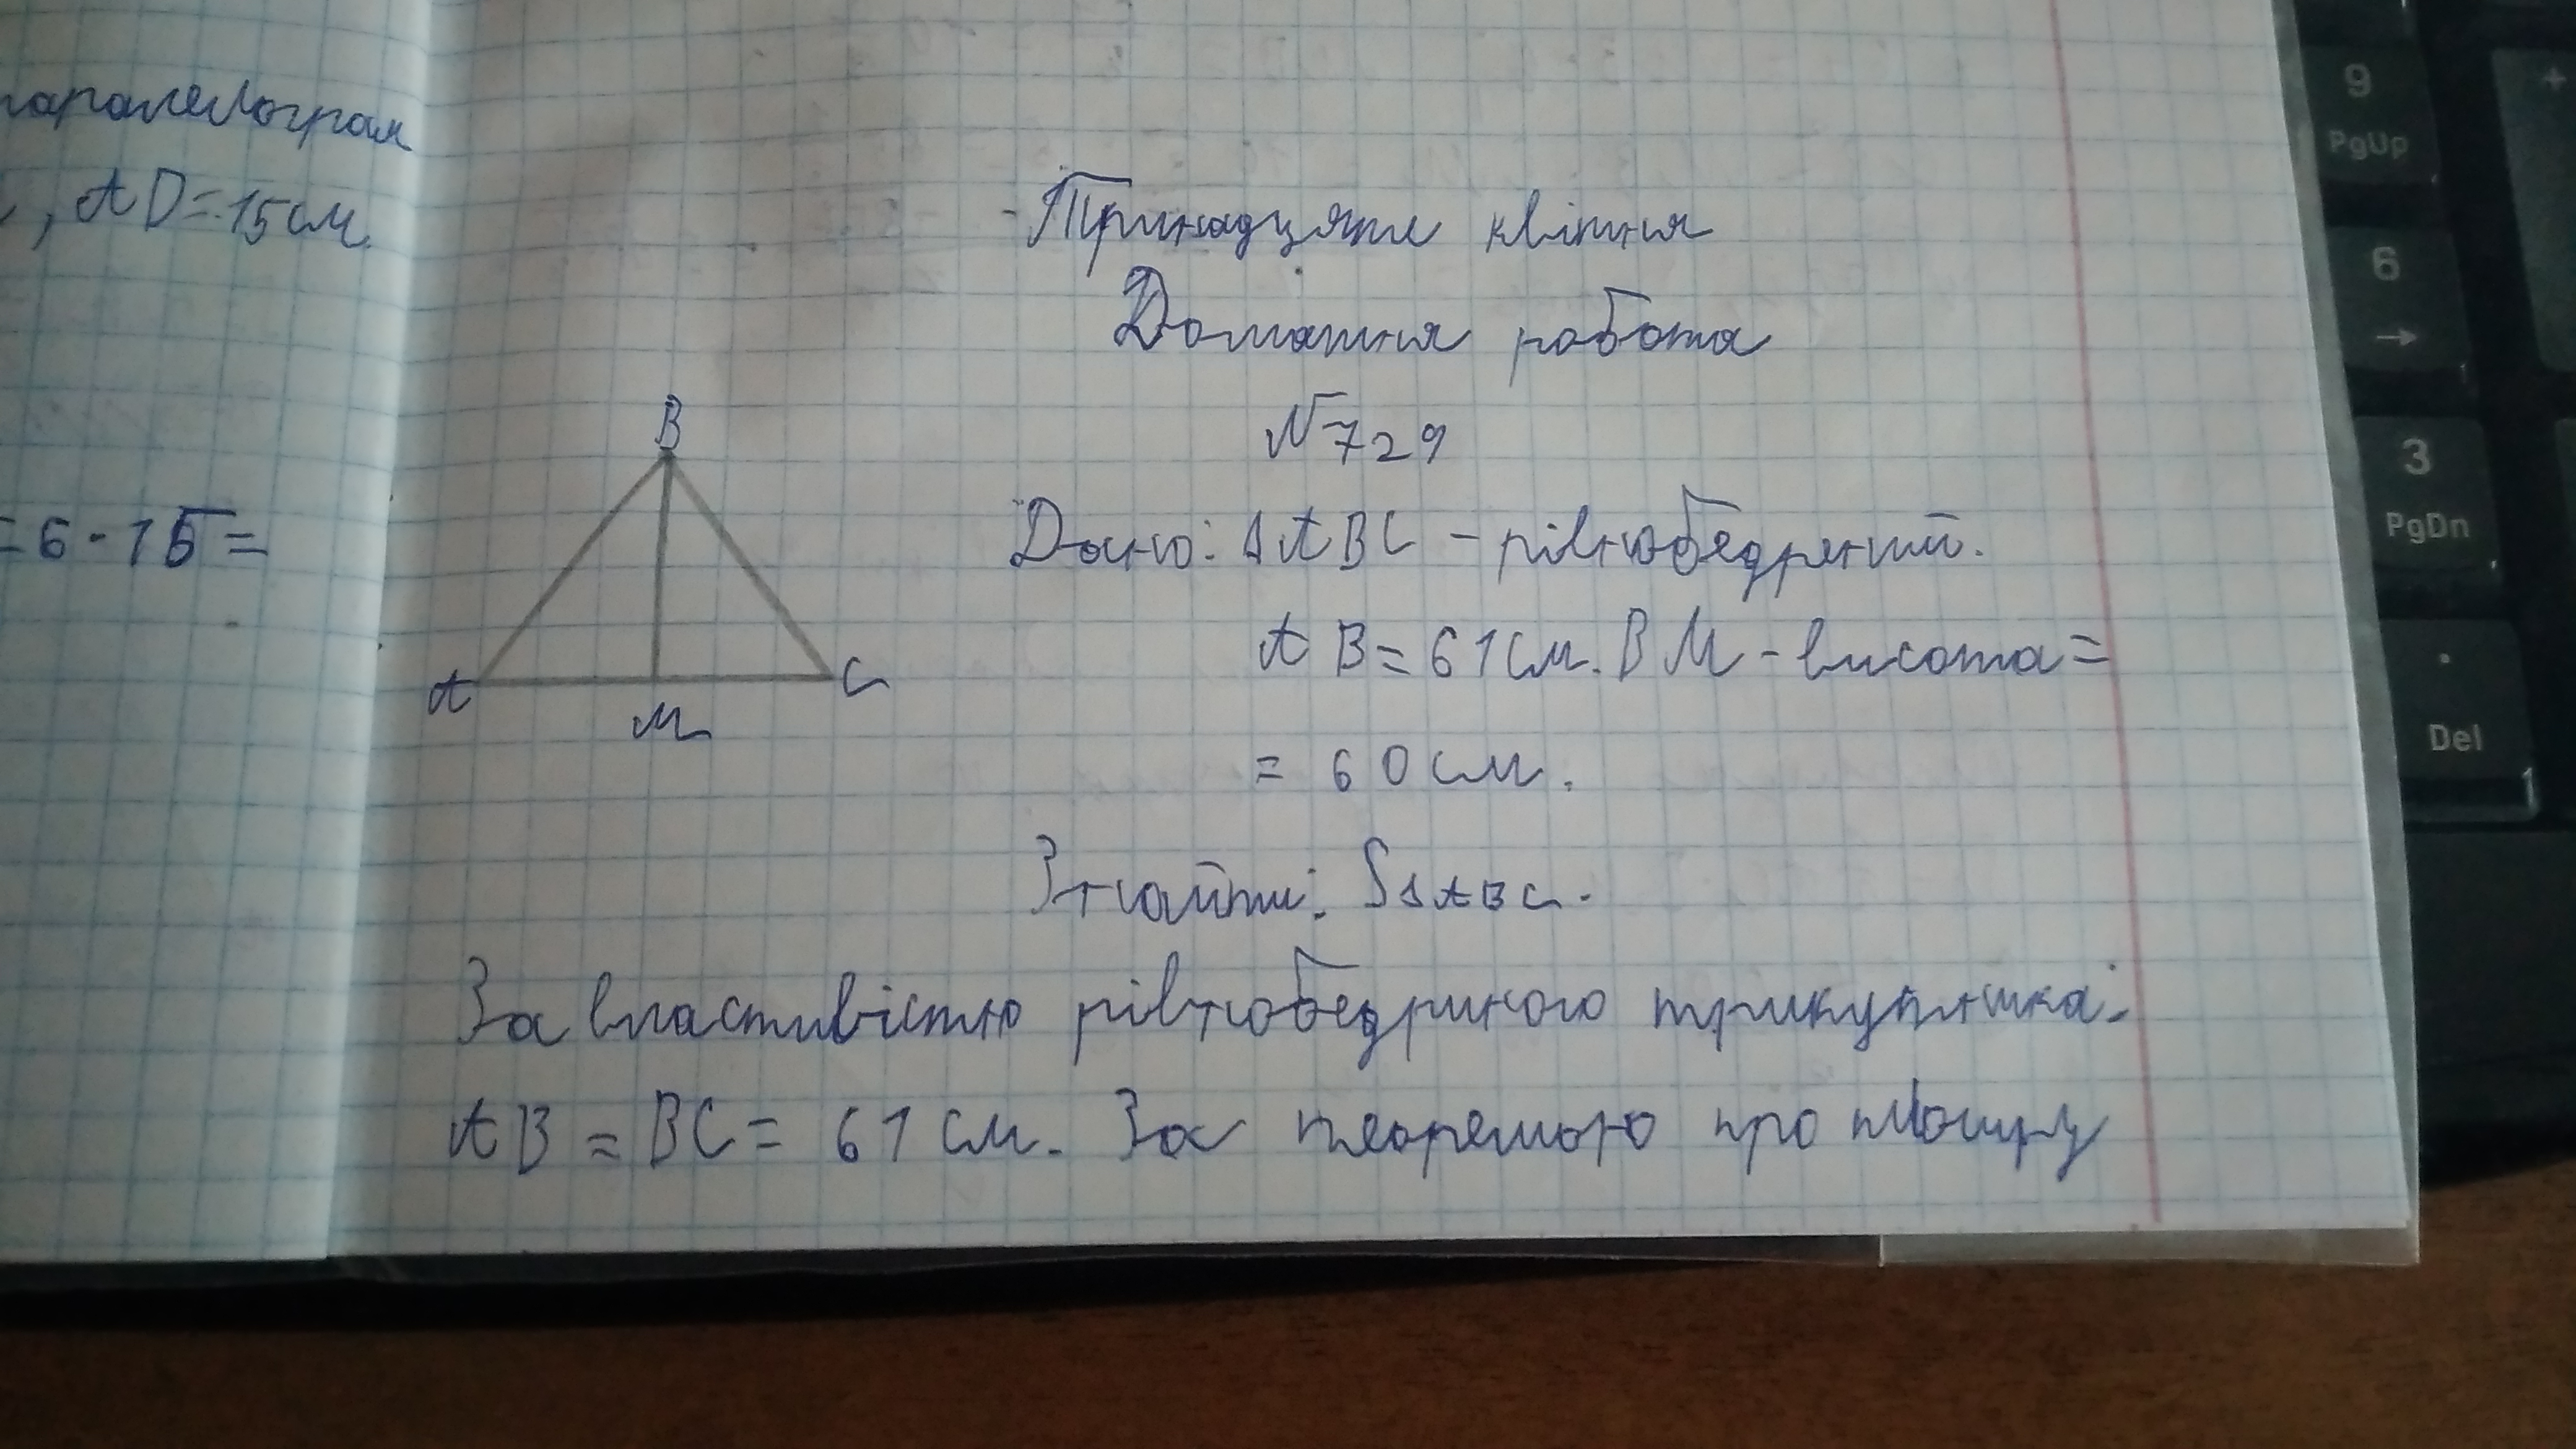 паралелограм
, AD=15см.
=6·15=
Тринадцяте квітня
Домашня робота
№729
B
A
M
C
Дано: ΔABC – рівнобедрений.
AB=61см. BM – висота=
= 60см.
Знайти: SΔABC.
За властивістю рівнобедриного трикутника.
AB = BC = 61 см. За теоремою про площу
9
PgUp
6
→
3
PgDn
.
Del
+